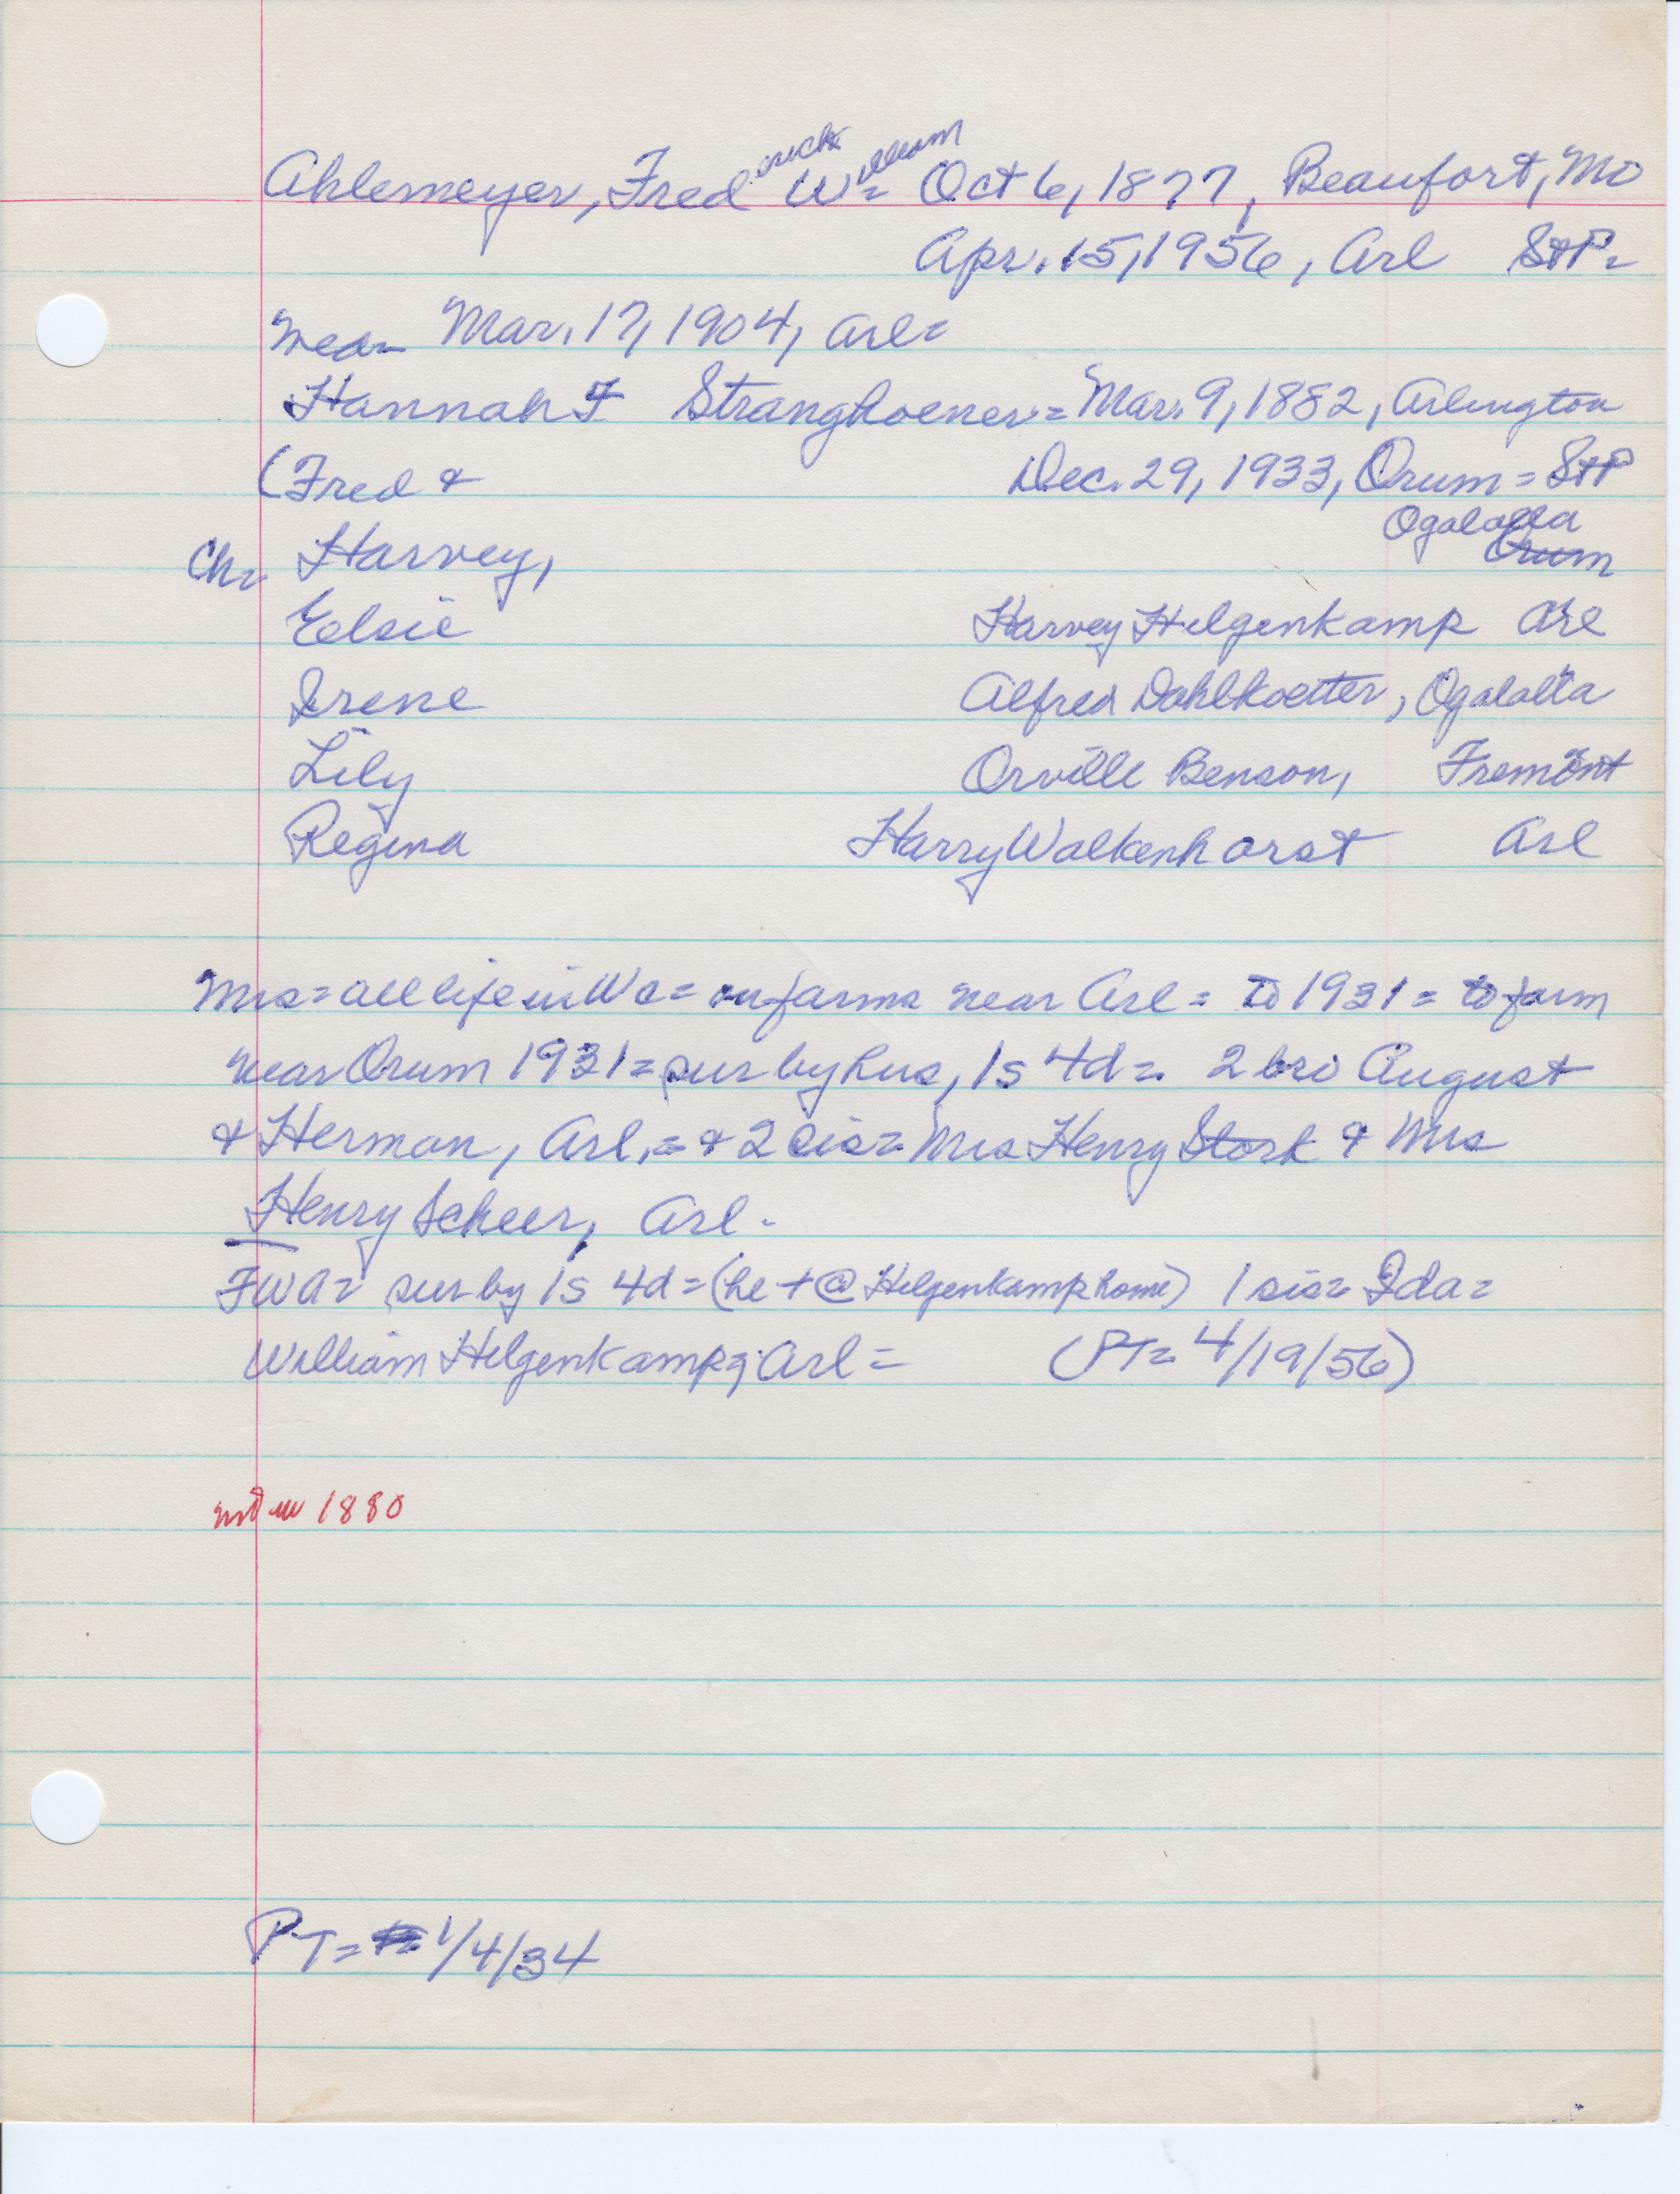 Ahlemeyer, Frederick William = Oct 6, 1877, Beaufort, Mo
Apr. 15, 1956, Arl StP =
Mar. 17, 1904, Arl =
Hannah F Stranghoener = Mar. 9, 1882, Arlington
(Fred & Dec. 29, 1933, Orum = StP
Ogalalla
Ch = Harvey, Orum
Eelsie Harvey Hilgenkamp Arl
Irene Alfred Dahlkoetter, Ogalalla
Lily Orville Benson, Fremont
Regina Harry Walkenhorst Arl
Mrs = all life in Wc = on farms near Arl = to 1931 = to farm
near Orum 1931 = sur by hus, 1s 4d = 2 bro August
& Herman, Arl, = & 2 sis = Mrs Henry Stork & Mrs
Henry Scheer, Arl -
FWA = sur by 1s 4d = (he + @ Hilgenkamp home) 1 sis = Ida =
William Hilgenkamp, Arl = (PT = 4/19/56)
not in 1880
PT = 1/4/34